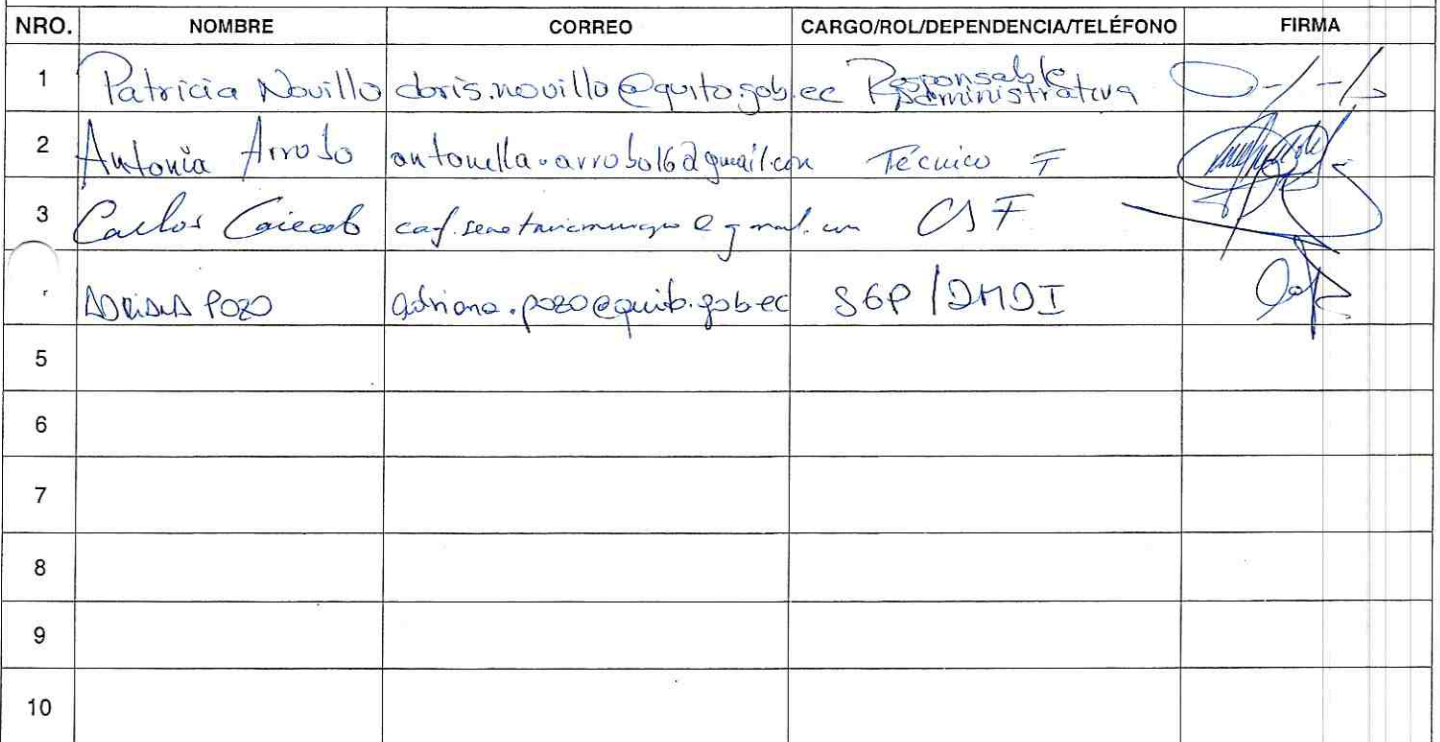 NRO. NOMBRE CORREO CARGO/ROL/DEPENDENCIA/TELÉFONO FIRMA
1 Patricia Novillo doris.novillo@quito.gob.ec Responsable Administrativa
2 Antonia Arrobo antonella.arrobo16@gmail.com Técnico F
3 Carlos
Pozo adriana.pozo@quito.gob.ec SGP/DMDI
5
6
7
8
9
10